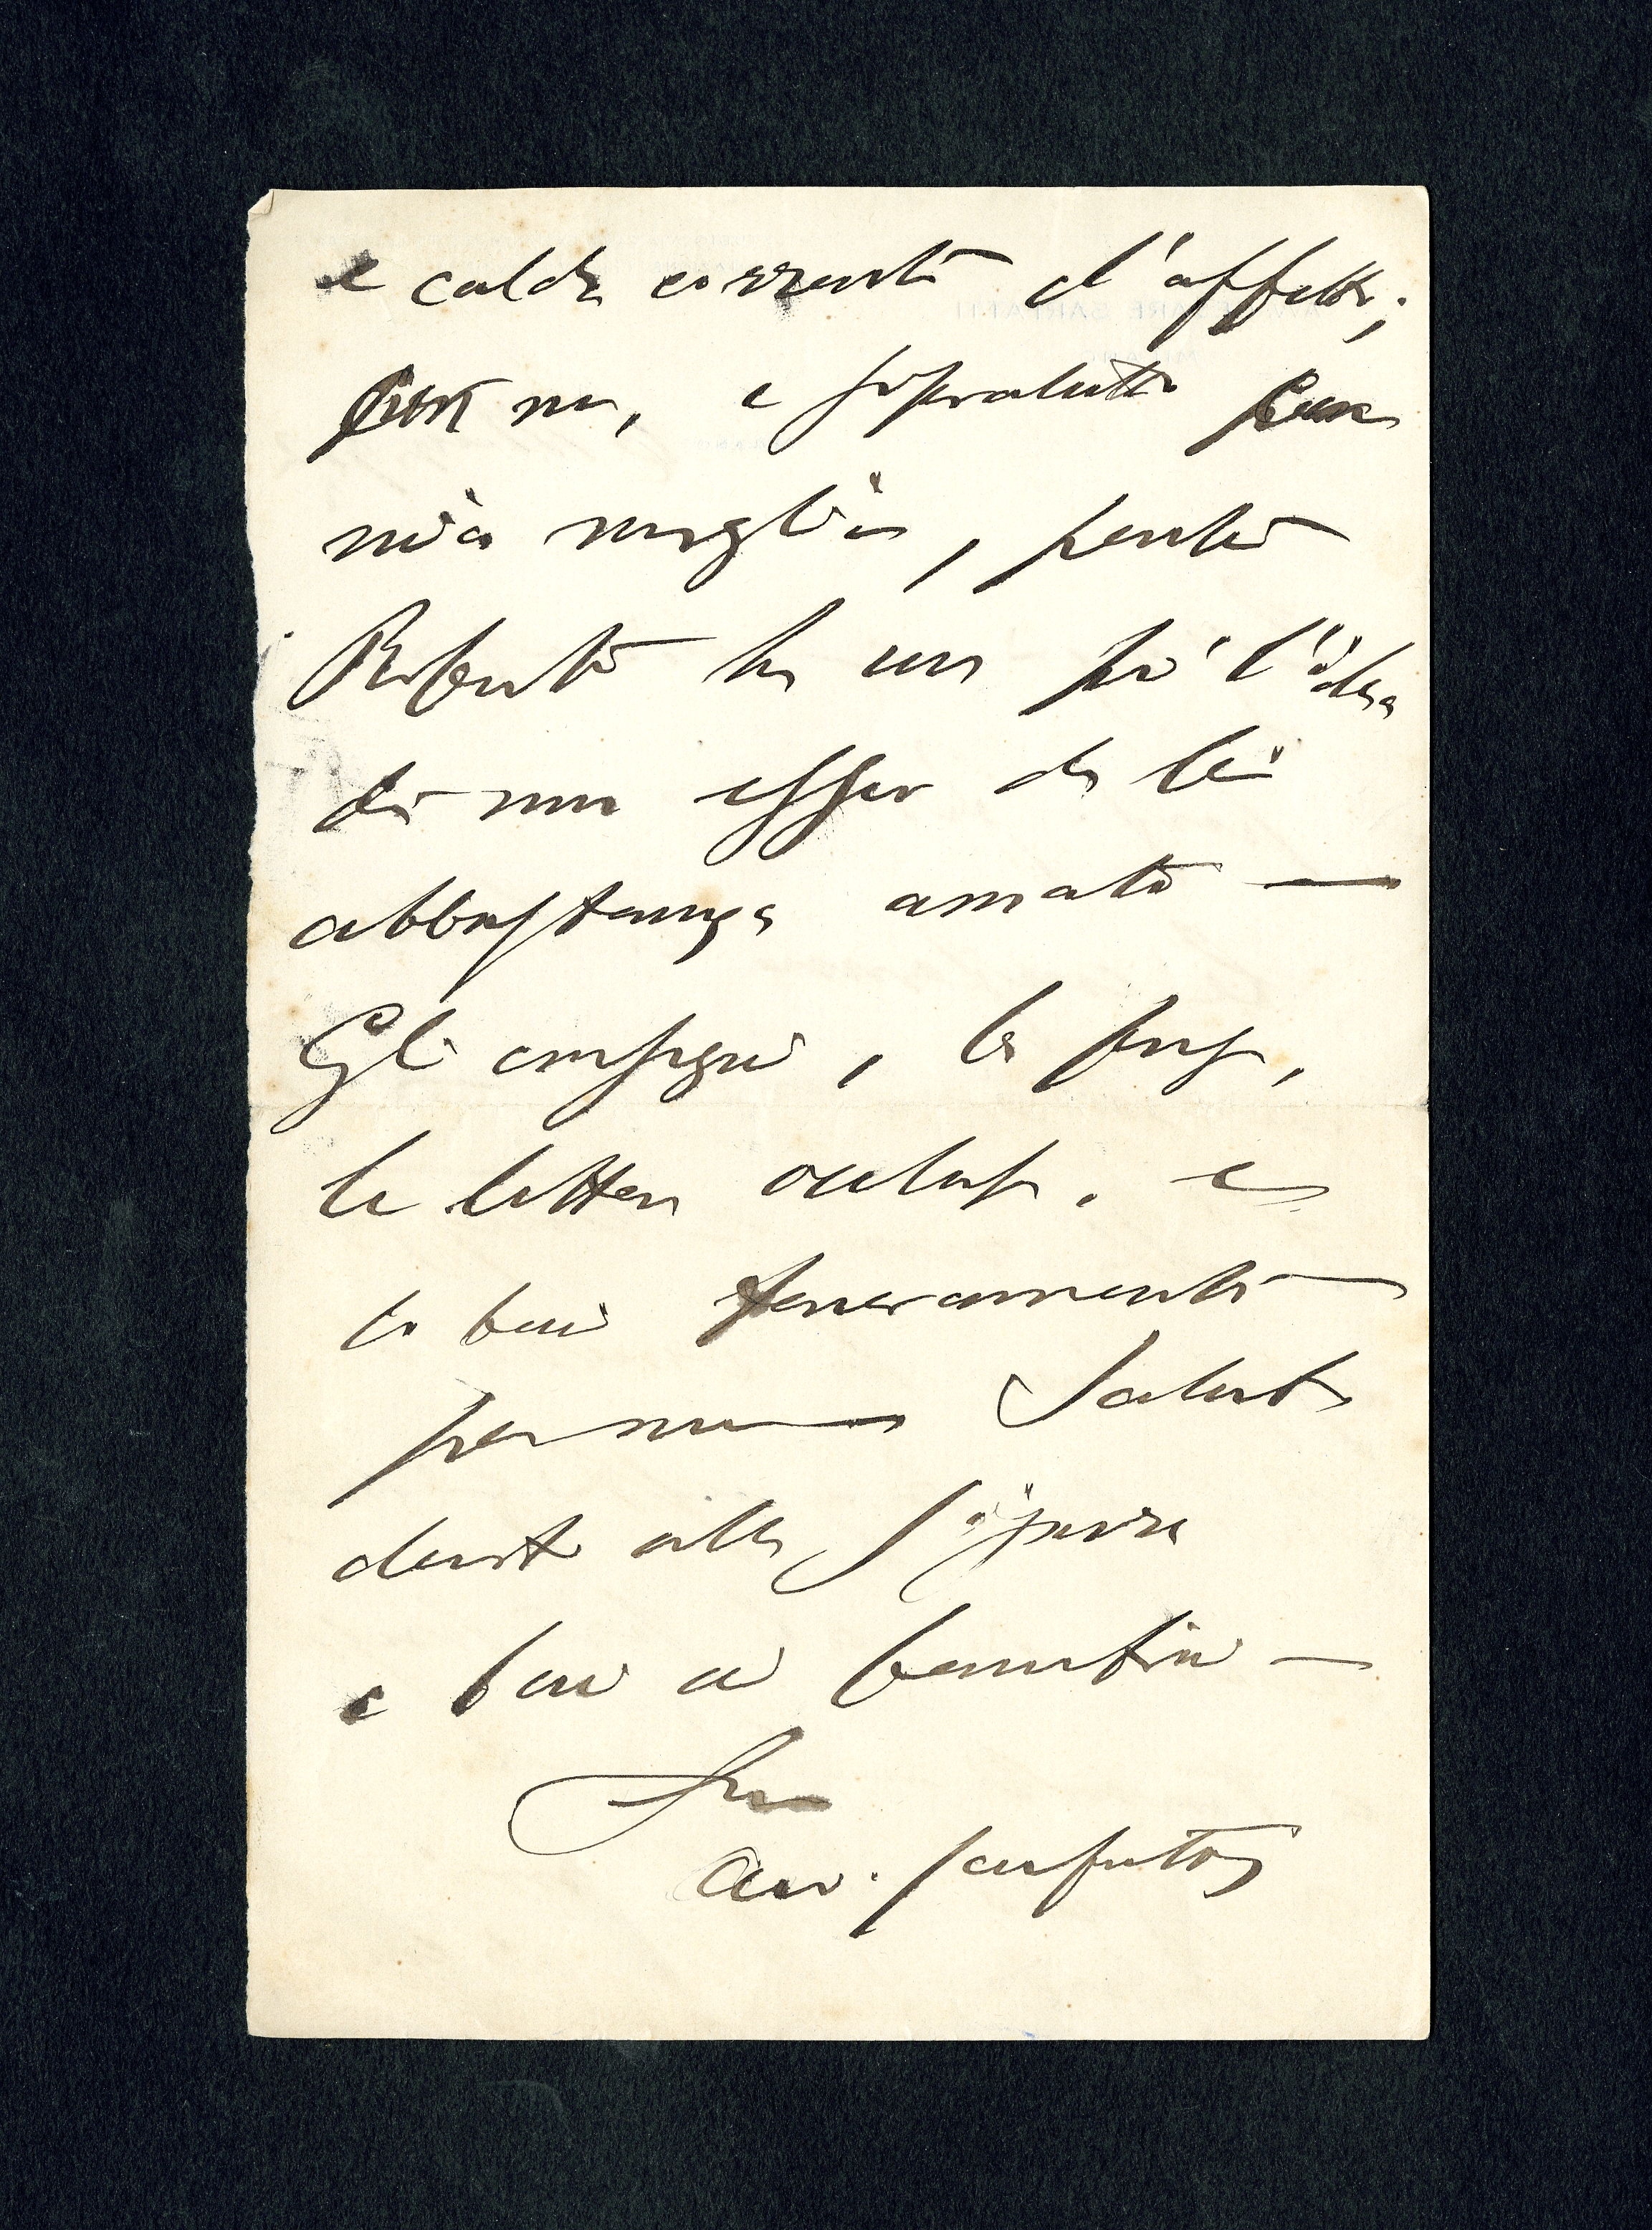 e calda corrente d'affetto;
per me, e sopratutto per
mia moglie, perchè
Roberto ha un po' l'idea
di non esser da lei
abbastanza amato —
Gli consegni, la prego,
la lettera acclusa, e
lo baci teneramente
per me Saluti
devoti alla Signora
e baci ai bambini —
Suo
avv. Sarfatti